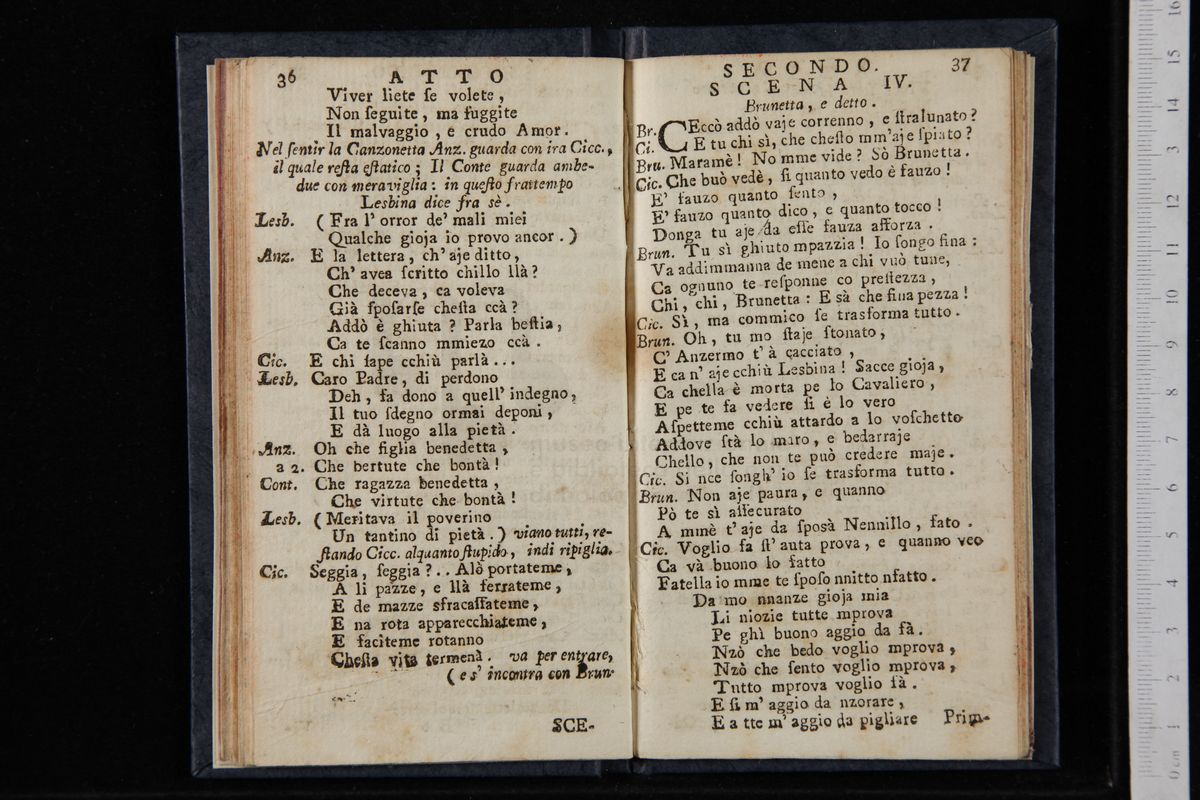 36 ATTO
Viver liete ſe volete,
Non ſeguite, ma fuggite
Il malvaggio, e crudo Amor.
Nel ſentir la Canzonetta Anz. guarda con ira Cicc.,
il quale reſta eſtatico; Il Conte guarda ambe-
due con meraviglia: in queſto frattempo
Lesbina dice fra sè.
Lesb. (Fra l' orror de' mali miei
Qualche gioja io provo ancor.)
Anz. E la lettera, ch' aje ditto,
Ch' avea ſcritto chillo llà?
Che deceva, ca voleva
Già ſpoſarſe cheſta ccà?
Addò è ghiuta? Parla beſtia,
Ca te ſcanno mmiezo ccà.
Cic. E chi ſape cchiù parlà...
Lesb. Caro Padre, di perdono
Deh, fa dono a quell' indegno,
Il tuo ſdegno ormai deponi,
E dà luogo alla pietà.
Anz. Oh che figlia benedetta,
a 2. Che bertute che bontà!
Cont. Che ragazza benedetta,
Che virtute che bontà!
Lesb. (Meritava il poverino
Un tantino di pietà.) viano tutti, re-
ſtando Cicc. alquanto ſtupido, indi ripiglia.
Cic. Seggia, ſeggia?.. Alò portateme,
A li pazze, e llà ferrateme,
E de mazze sfracaſſateme,
E na rota apparecchiateme,
E faciteme rotanno
Cheſta vita termenà. va per entrare,
(e s' incontra con Brun.
SCE-
SECONDO. 37
SCENA IV.
Brunetta, e detto.
Br. CEccò addò vaje correnno, e ſtralunato?
Ci. E tu chi sì, che cheſto mm'aje ſpiato?
Bru. Maramè! No mme vide? Sò Brunetta.
Cic. Che buò vedè, ſi quanto vedo è fauzo!
E' fauzo quanto ſento,
E' fauzo quanto dico, e quanto tocco!
Donga tu aje da eſſe fauza afforza.
Brun. Tu sì ghiuto mpazzia! Io ſongo fina:
Va addimmanna de mene a chi vuò tune,
Ca ognuno te reſponne co preſtezza,
Chi, chi, Brunetta: E sà che fina pezza!
Cic. Sì, ma commico ſe trasforma tutto.
Brun. Oh, tu mo ſtaje ſtonato,
C' Anzermo t' à cacciato,
E ca n' aje cchiù Lesbina! Sacce gioja,
Ca chella è morta pe lo Cavaliero,
E pe te fa vedere ſi è lo vero
Aſpetteme cchiù attardo a lo voſchetto
Addove ſtà lo muro, e bedarraje
Chello, che non te può credere maje.
Cic. Si nce ſongh' io ſe trasforma tutto.
Brun. Non aje paura, e quanno
Pò te sì aſſecurato
A mmè t' aje da ſposà Nennillo, fato.
Cic. Voglio fa ſt' auta prova, e quanno veo
Ca và buono lo fatto
Fatella io mme te ſpoſo nnitto nfatto.
Da mo nnanze gioja mia
Li niozie tutte mprova
Pe ghì buono aggio da fà.
Nzò che bedo voglio mprova,
Nzò che ſento voglio mprova,
Tutto mprova voglio fà.
E ſi m' aggio da nzorare,
E a tte m' aggio da pigliare Prim-